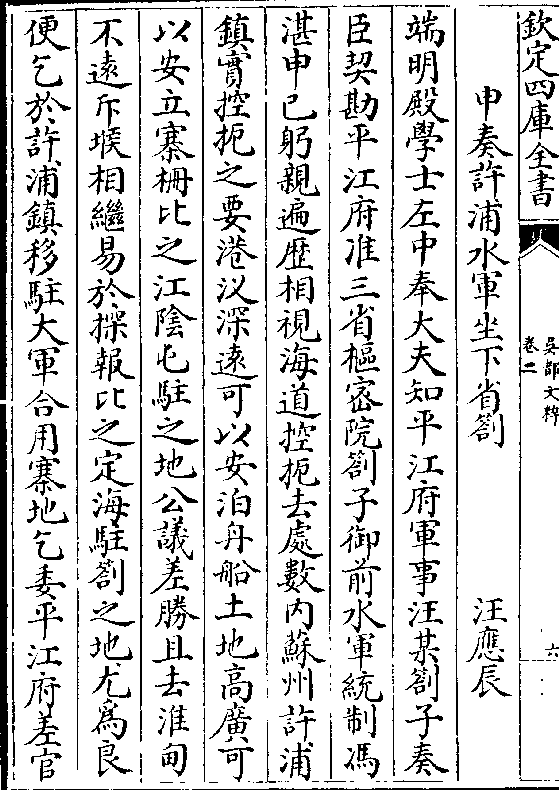 欽定四庫全書
吳都文粹
卷二
六
申奏許浦水軍坐下省劄
汪應辰
端明殿學士左中奉大夫知平江府軍事汪某劄子奏
臣契勘平江府准三省樞密院劄子御前水軍統制馮
湛申已躬親遍歴相視海道控扼去處數内蘇州許浦
鎮實控扼之要港汊深逺可以安泊舟船土地髙廣可
以安立寨栅比之江隂屯駐之地公議差勝且去淮甸
不逺斥堠相繼易於探報比之定海駐劄之地尤爲良
便乞於許浦鎮移駐大軍合用寨地乞委平江府差官